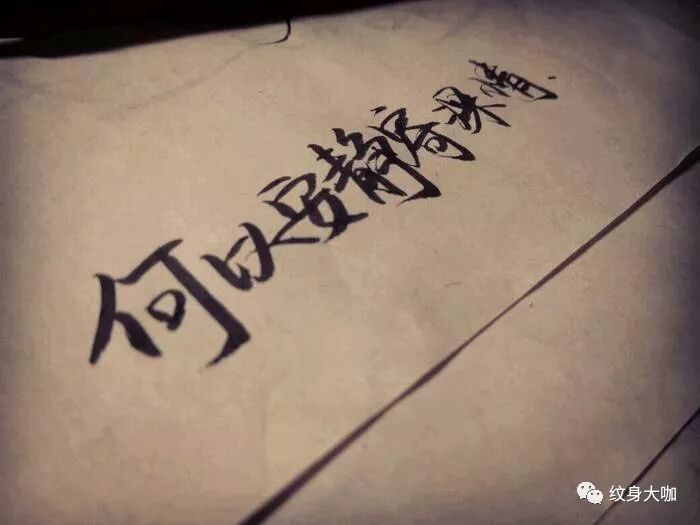 何以安静寄深情.
纹身大咖